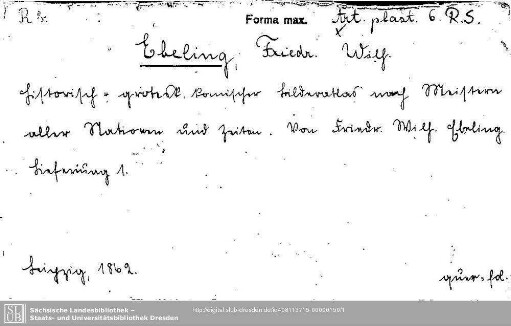 R 8x.
Forma max.
Art. plast. 6. R.S.
Ebeling, Friedr. Wilh.
Historisch-grotesk. komischer Bilderatlas nach Meistern
aller Nationen und Zeiten. Von Friedr. Wilh. Ebeling
Lieferung 1.
Leipzig, 1862.
quer-fol.
Sächsische Landesbibliothek –
Staats- und Universitätsbibliothek Dresden